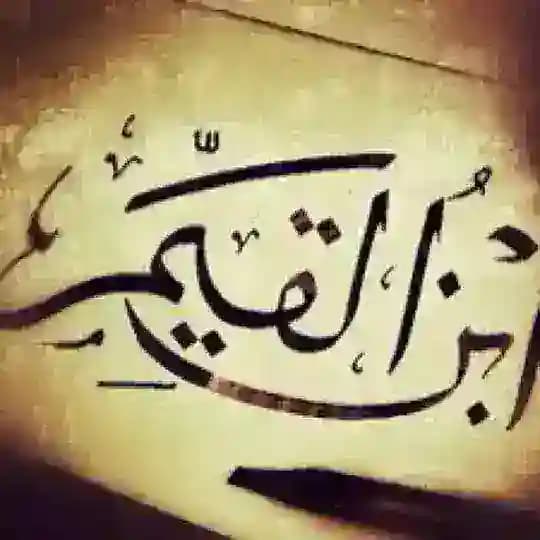 ابنُ القيِّم